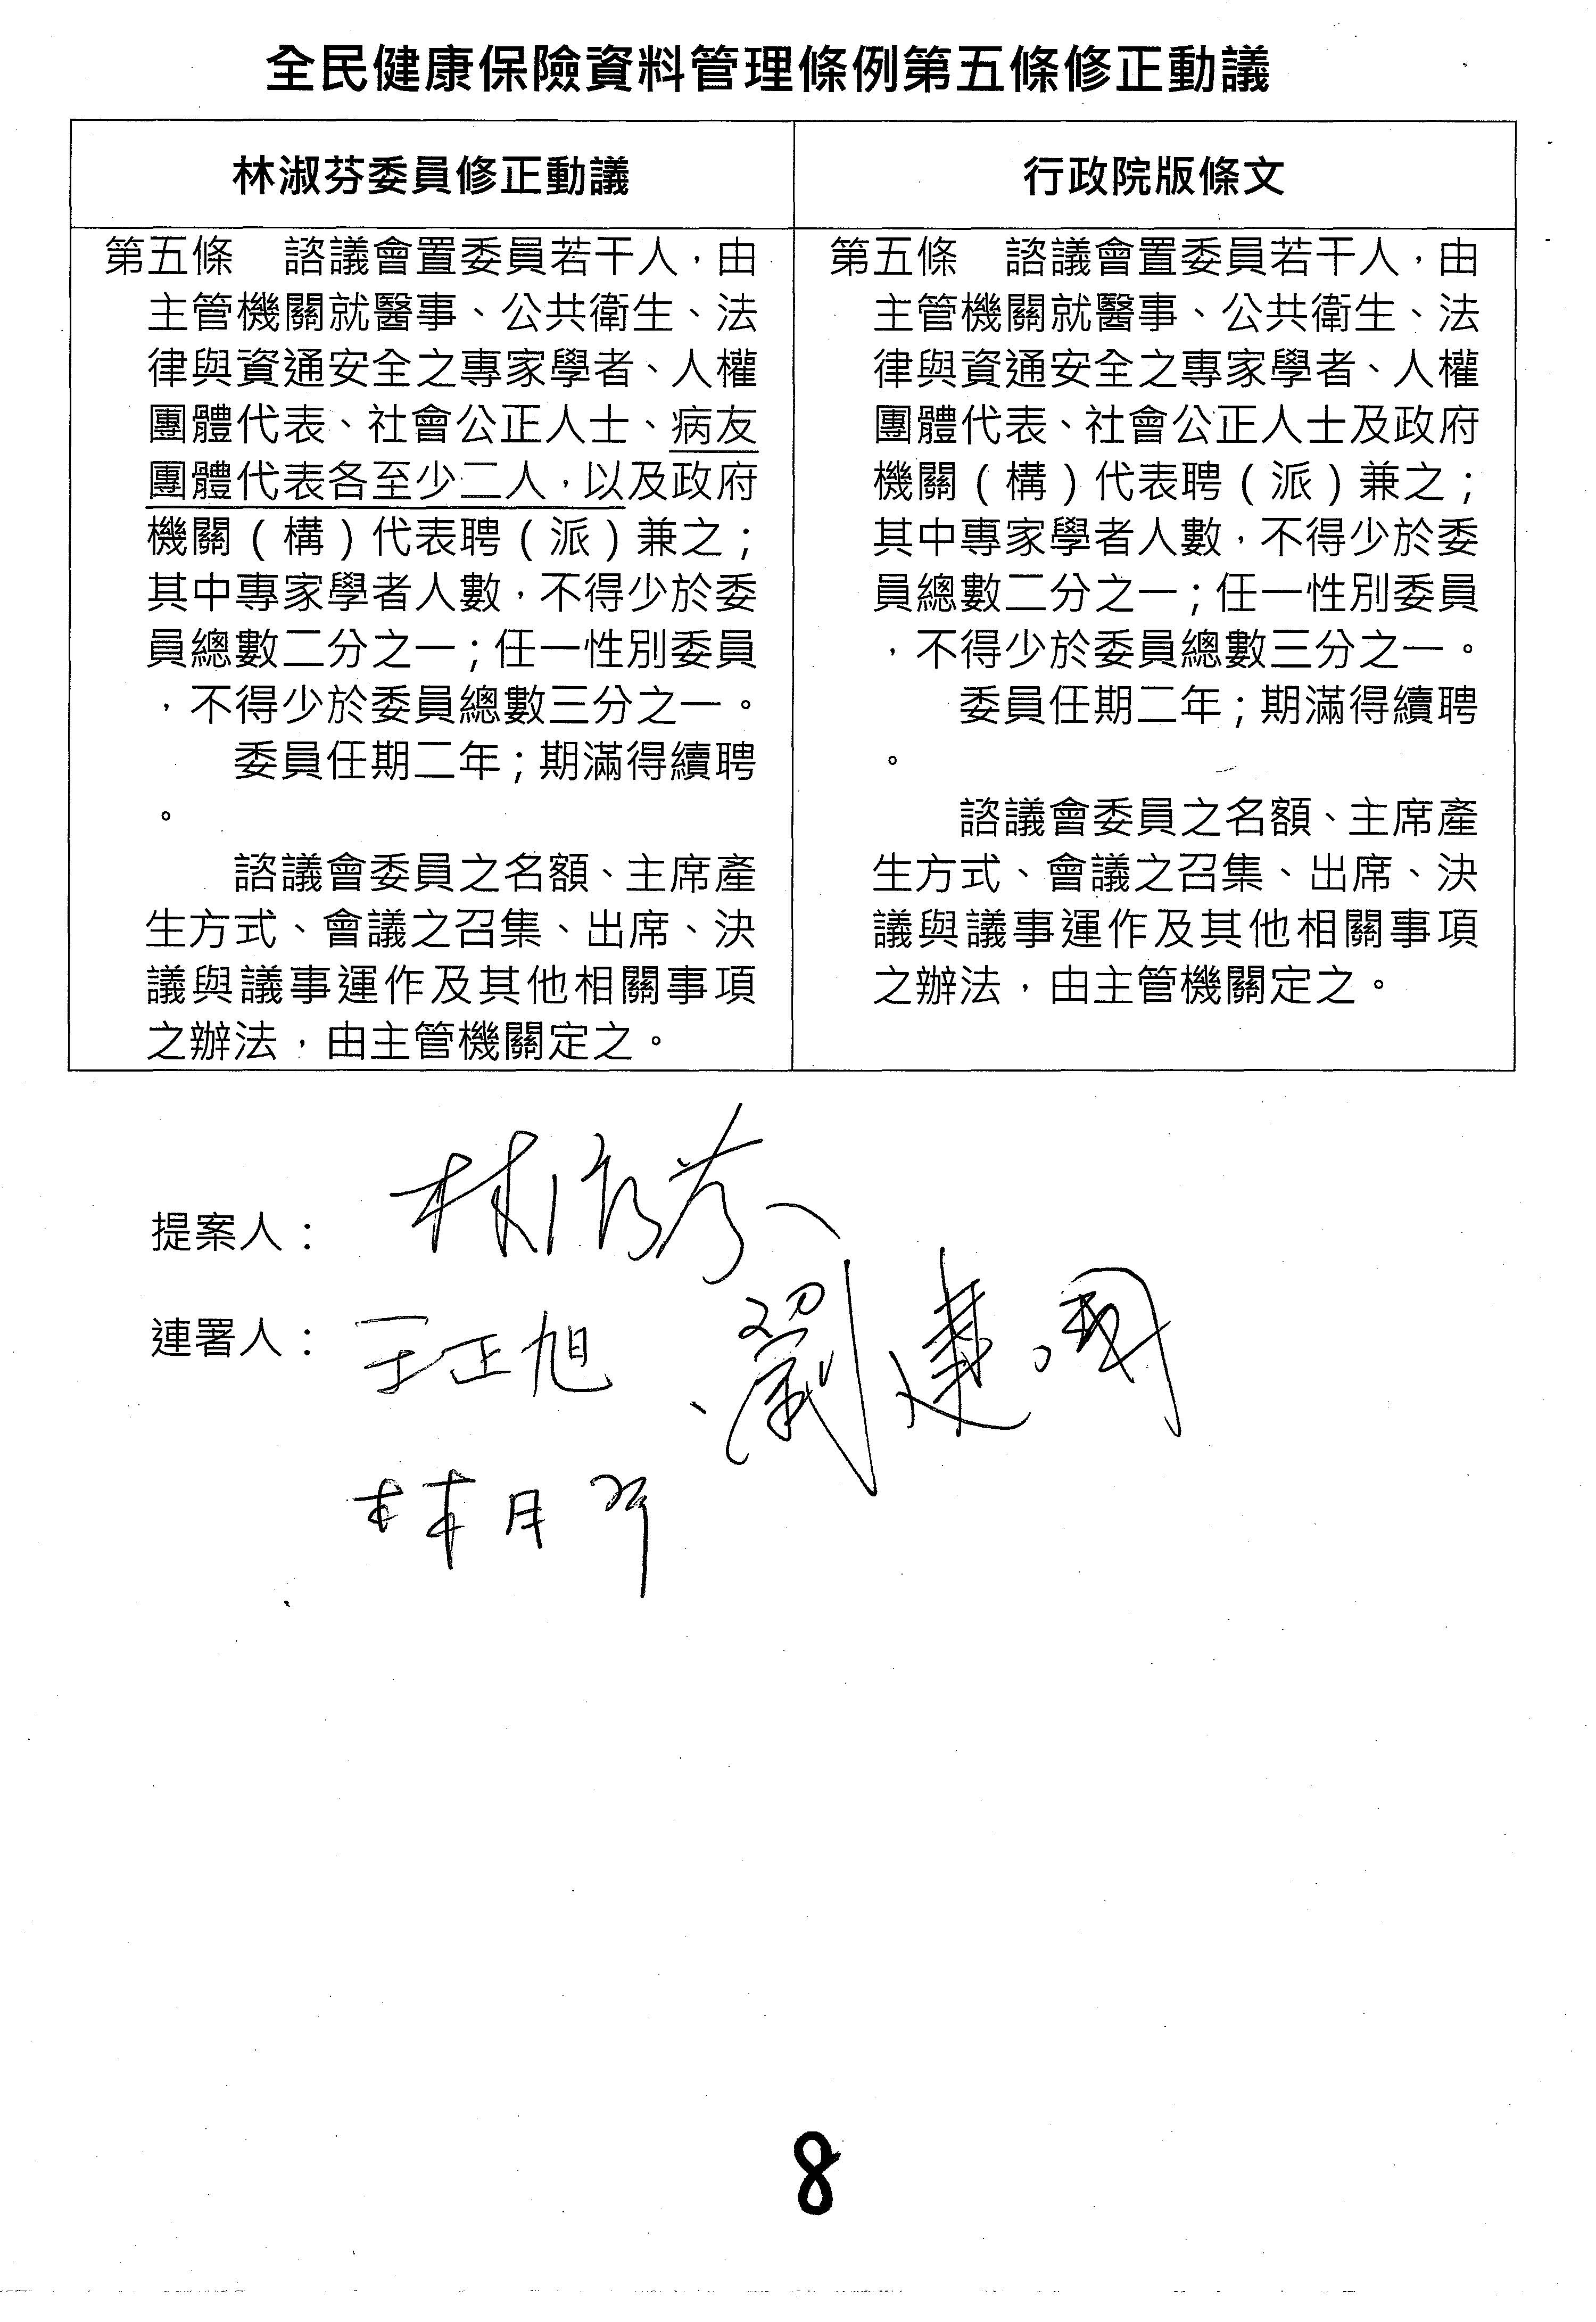 全民健康保險資料管理條例第五條修正動議
林淑芬委員修正動議
第五條　諮議會置委員若干人，由
主管機關就醫事、公共衛生、法
律與資通安全之專家學者、人權
團體代表、社會公正人士、病友
團體代表各至少二人，以及政府
機關（構）代表聘（派）兼之；
其中專家學者人數，不得少於委
員總數二分之一；任一性別委員
，不得少於委員總數三分之一。
委員任期二年；期滿得續聘
。
諮議會委員之名額、主席產
生方式、會議之召集、出席、決
議與議事運作及其他相關事項
之辦法，由主管機關定之。
行政院版條文
第五條　諮議會置委員若干人，由
主管機關就醫事、公共衛生、法
律與資通安全之專家學者、人權
團體代表、社會公正人士及政府
機關（構）代表聘（派）兼之；
其中專家學者人數，不得少於委
員總數二分之一；任一性別委員
，不得少於委員總數三分之一。
委員任期二年；期滿得續聘
。
諮議會委員之名額、主席產
生方式、會議之召集、出席、決
議與議事運作及其他相關事項
之辦法，由主管機關定之。
提案人：林淑芬
連署人：王正旭 劉建國
林月琴
8